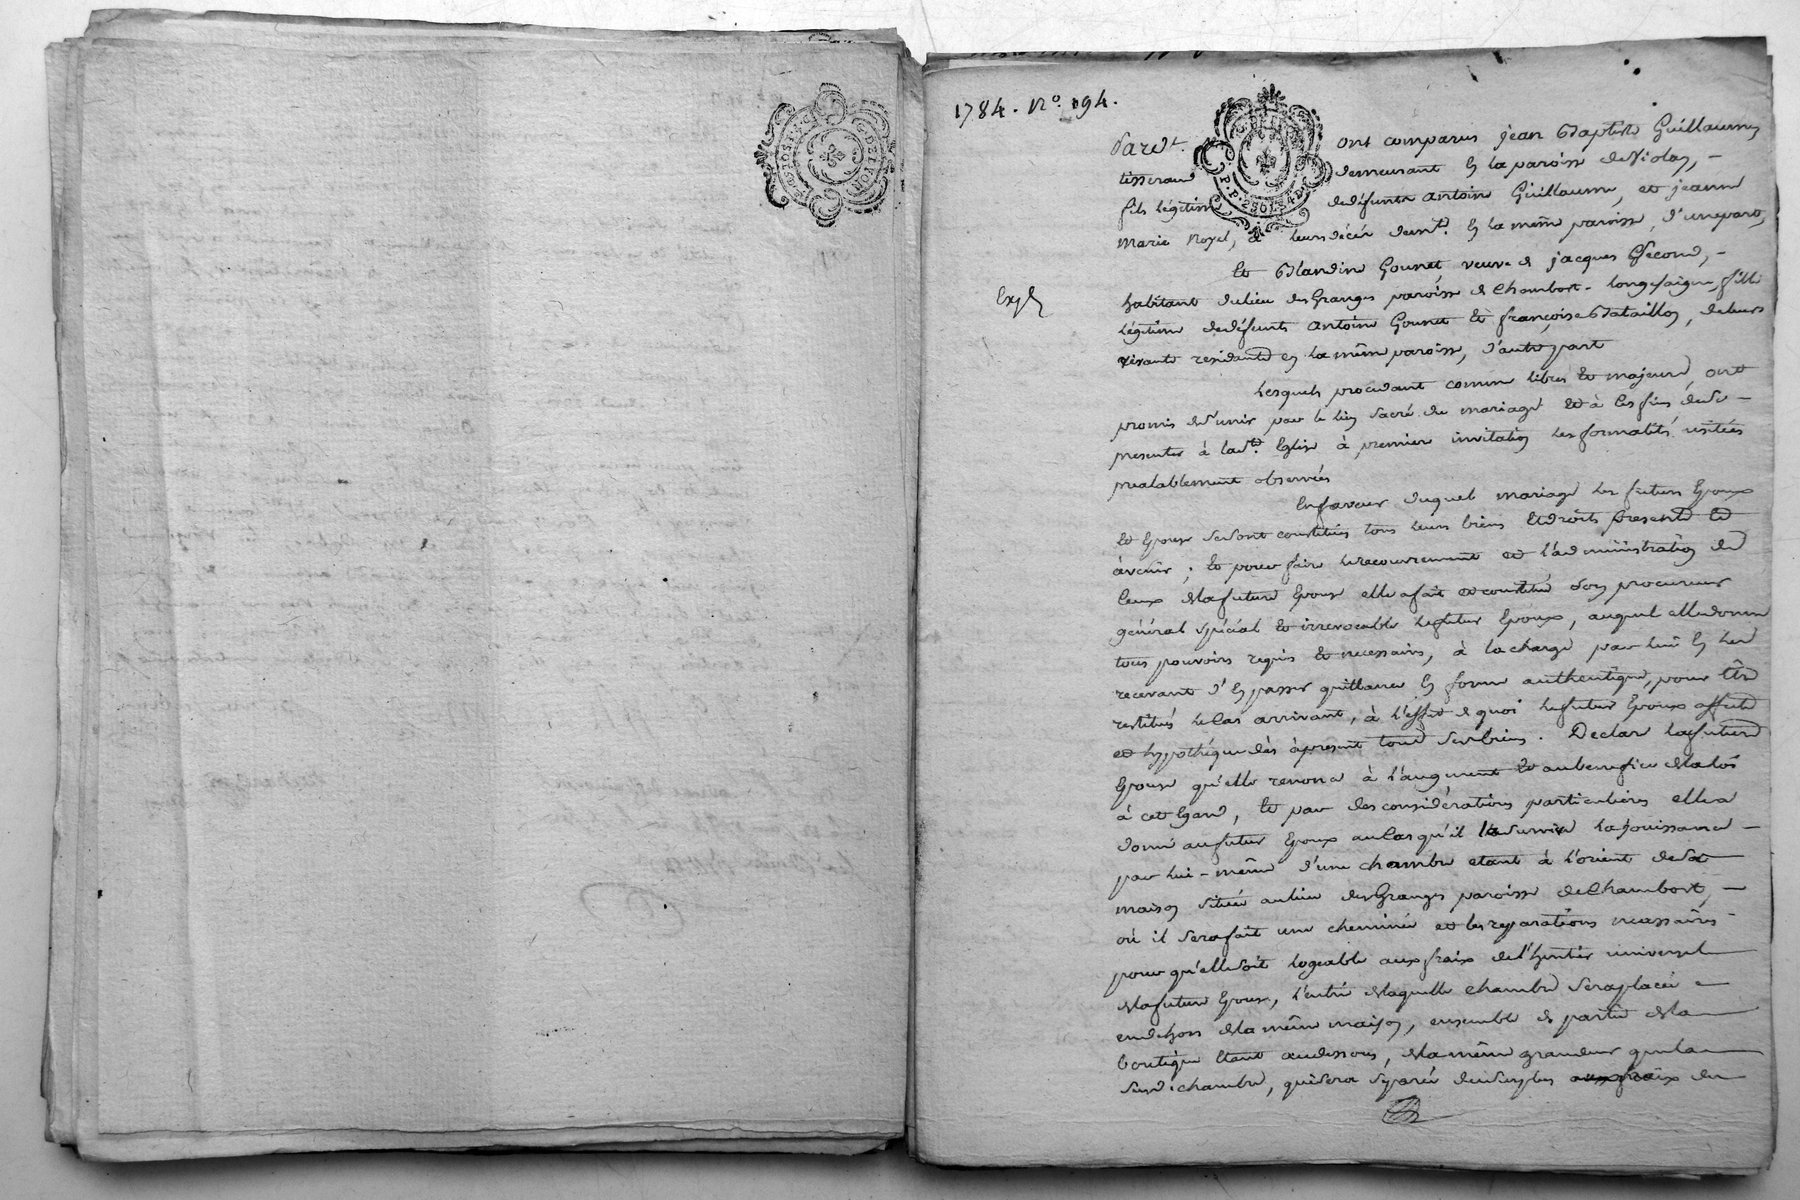 1784. N.º 194.
Pardt. ont comparus jean Baptiste Guillaume
tisserand demeurant En la paroisse de Violay, -
fils légitime de défunts antoine Guillaume, et jeanne
Marie Noyel, à leurs décès demt. En la même paroisse, d'une part,
Et Blandine Gounet veuve de jacques Second, -
habitante du lieu des Granges paroisse de Chambost-longesaigne, fille
légitime de défunts antoine Gounet Et françoise Bataillon, de leurs
vivants residants en la même paroisse, d'autre part
Expé
Lesquels procédant comme libres Et majeurs, ont
promis de s'unir par le lien sacré du mariage Et à Ces fins de se -
presenter à lad.te Eglise à premiere invitation les formalités usitées
prealablement observées
En faveur duquel mariage les futurs Epoux
Et Epouse se sont constitués tous leurs biens Et droits presents Et
àvenir ; Et pour faire le recouvrement et l'administration de
Ceux de la future Epouse elle a fait et constitué son procureur
général spécial Et irrevocable le futur Epoux, auquel elle donne
tous pouvoirs requis Et necessaires, à la charge par lui En les
recevant d'En passer quittance En forme authentique, pour Être
restitués le Cas arrivant, à l'effet de quoi le futur Epoux affecte
et hypothéque dès àpresent tous ses biens. Declare la future
Epouse qu'elle renonce à l'augment Et au benefice de la loi
à cet Egard, Et par des considérations particulieres elle a
donné au futur Epoux au Cas qu'il la survive la jouissance -
par lui-même d'une chambre etant à l'orient de sa
maison située au lieu des Granges paroisse de Chambost, -
où il sera fait une cheminée et les reparations necessaires -
pour qu'elle soit logeable aux fraix de l'heritier universel
de la future Epouse, l'entrée de laquelle chambre sera placée
en dehors de la même maison, ensemble de partie de la
boutique Etant audessous, de la même grandeur que la
susd. chambre, qui sera séparée du surplus aux fraix du